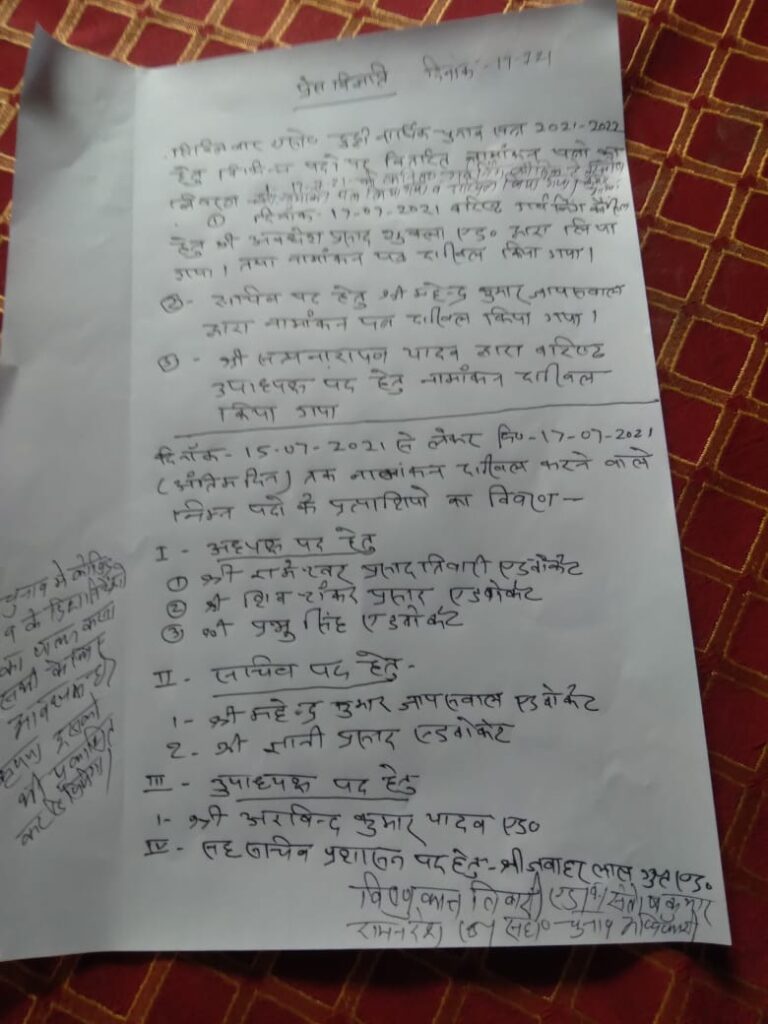 प्रेस विज्ञप्ति दिनांक-17-7-21
सिविल बार एसो० दुद्धी वार्षिक चुनाव सत्र 2021-2022
हेतु विभिन्न पदों पर नामांकन पत्रों का
विवरण
① दिनांक-17-07-2021 वरिष्ठ
हेतु श्री अवधेश प्रसाद शुक्ला एड० द्वारा लिया
गया। तथा नामांकन पत्र दाखिल किया गया।
② - सचिव पद हेतु श्री महेन्द्र कुमार जायसवाल
द्वारा नामांकन पत्र दाखिल किया गया।
③ - श्री सत्यनारायण यादव द्वारा वरिष्ठ
उपाध्यक्ष पद हेतु नामांकन दाखिल
किया गया
दिनाँक-15-07-2021 से लेकर दि०-17-07-2021
(अंतिम दिन) तक नामांकन दाखिल करने वाले
निम्न पदों के प्रत्याशियों का विवरण –
I - अध्यक्ष पद हेतु
① श्री रामेश्वर प्रसाद तिवारी एडवोकेट
② श्री शिव शंकर प्रसाद एडवोकेट
③ श्री प्रभु सिंह एडवोकेट
II - सचिव पद हेतु-
1- श्री महेन्द्र कुमार जायसवाल एडवोकेट
2. श्री प्रसाद एडवोकेट
III - उपाध्यक्ष पद हेतु
1- श्री अरविन्द कुमार यादव एड०
IV - सह सचिव प्रशासन पद हेतु- श्री जवाहर लाल गुप्त एड०
विष्णु कान्त तिवारी एड० संतोष कुमार
रामनरेश चुनाव अधिकारी
चुनाव में कोविड
के दिशा निर्देशों
का पालन करना
सभी के लिए
आवश्यक है।
कृपया इसको
भी प्रकाशित
कर दीजियेगा